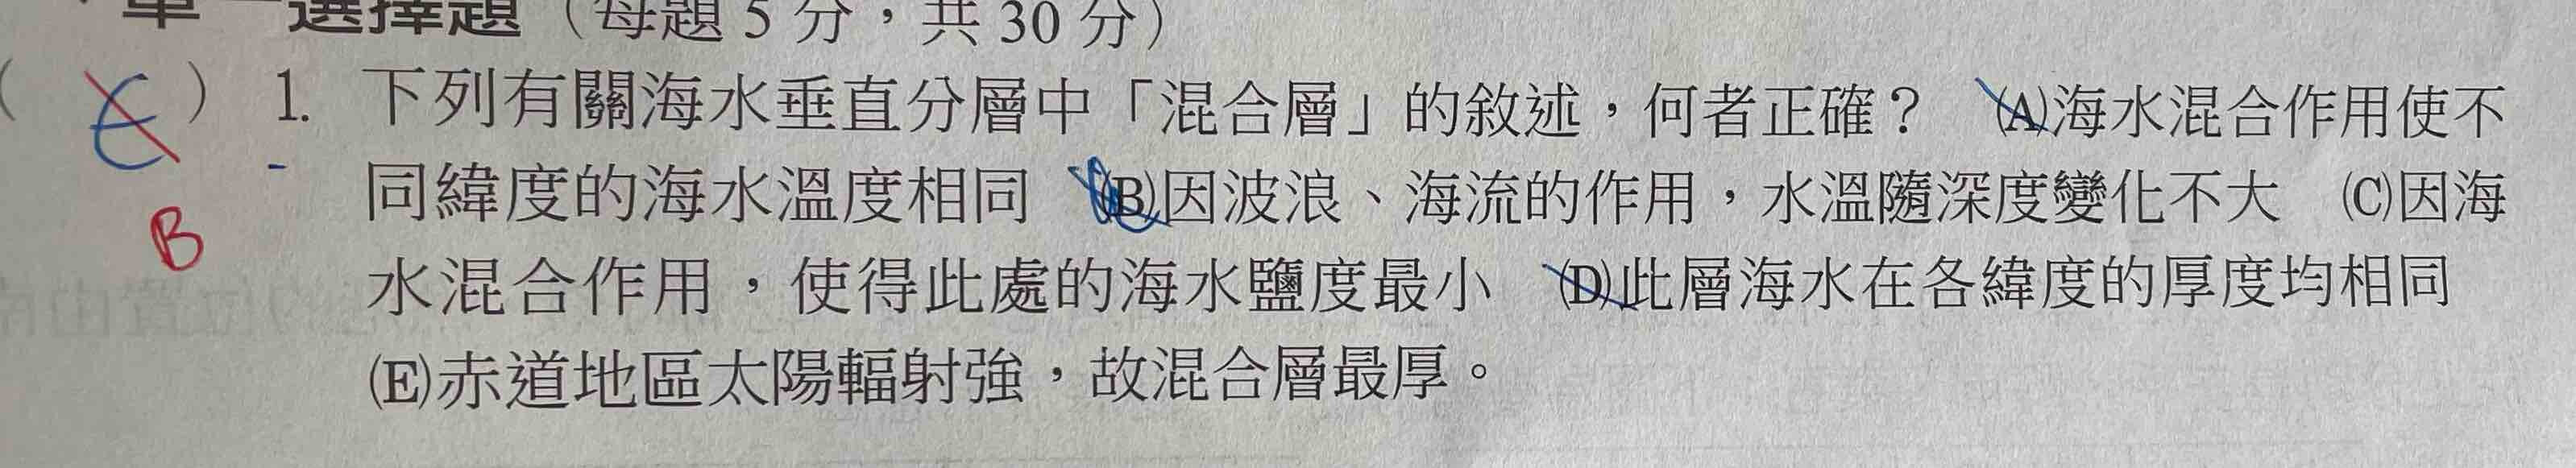 單一選擇題（每題 5 分，共 30 分）
( E ) 1. 下列有關海水垂直分層中「混合層」的敘述，何者正確？ (A)海水混合作用使不
同緯度的海水溫度相同 (B)因波浪、海流的作用，水溫隨深度變化不大 (C)因海
B
水混合作用，使得此處的海水鹽度最小 (D)此層海水在各緯度的厚度均相同
(E)赤道地區太陽輻射強，故混合層最厚。